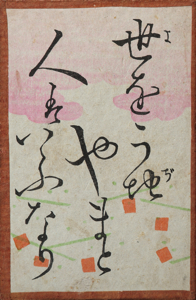 よ ぢ
世をう地
やまと
人はいふなり